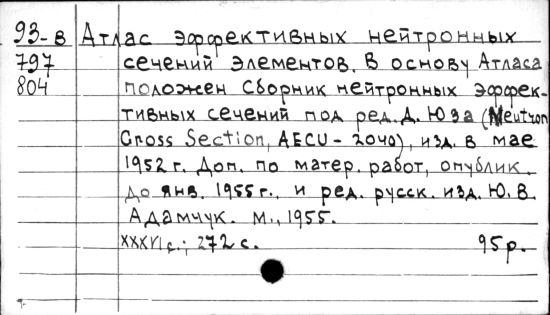 93-в Атлас эффективных нейтронных
797 сечений элементов. В основу Атласа
804 положен Сборник нейтронных эффек-
тивных сечений под ред. Д. Юза (Neutron
Cross Section, AECU - 2040), изд. в мае
1952 г. Доп. по матер. работ, опублик.
до янв. 1955 г. и ред. русск. изд. Ю. В.
Адамчук. М., 1955.
XXXVI с.; 272 с. 95 р.